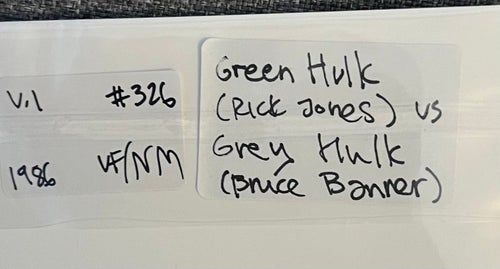 V.1 #326
1986 VF/NM
Green Hulk
(Rick Jones) vs
Grey Hulk
(Bruce Banner)